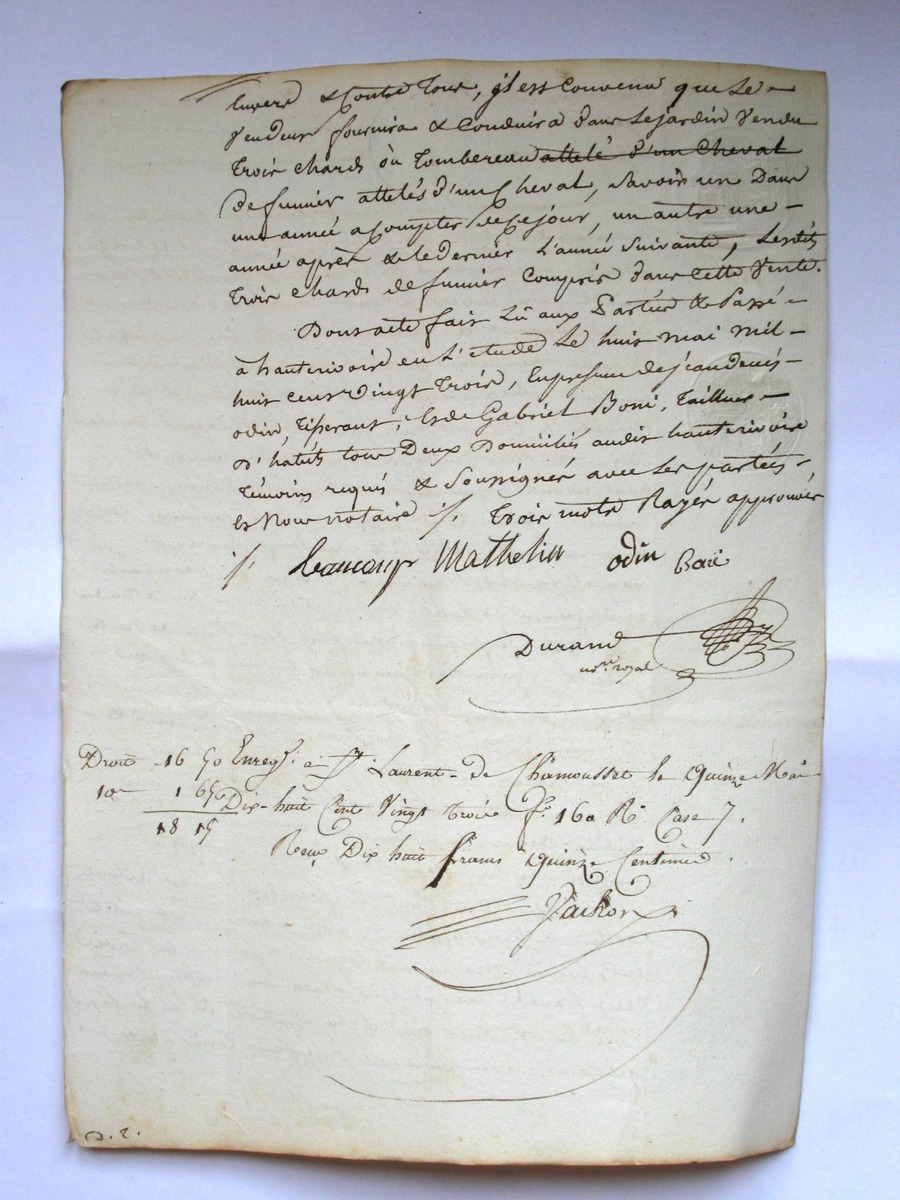 Envers & Contre Tous, il est Convenu que Le
Vendeur fournira & Conduira dans Le jardin Vendu
Trois chards où Tombereau attelé d'un Cheval
de fumier attelés d'un Cheval, Savoir un Dans
une année a Compter de Ce jour, un autre une
année après & le dernier L'année Suivante, Lesdits
Trois chards de fumier Compris dans Cette Vente.
Dont acte fait Lû aux Parties & Passé
à hauterivoire en L'etude Le huit mai mil
huit cent vingt Trois, En presence de jean denis
odin, Tisserant, & de Gabriel Boni, Tailleur
D'habits tous Deux Domiciliés audit hauterivoire
Témoins requis & Soussignés avec Les parties
Et Nous notaire ·/. Trois mots Rayés approuvés
·/. Mathelin odin
Durand
no.re royal
Droit 16 50 Enreg. à St Laurent de Chamousset le quinze Mai
10e 1 65 Dix-huit Cent Vingt Trois f.o 160 Ro Case 7.
18 15
Reçu Dix huit francs quinze Centimes.